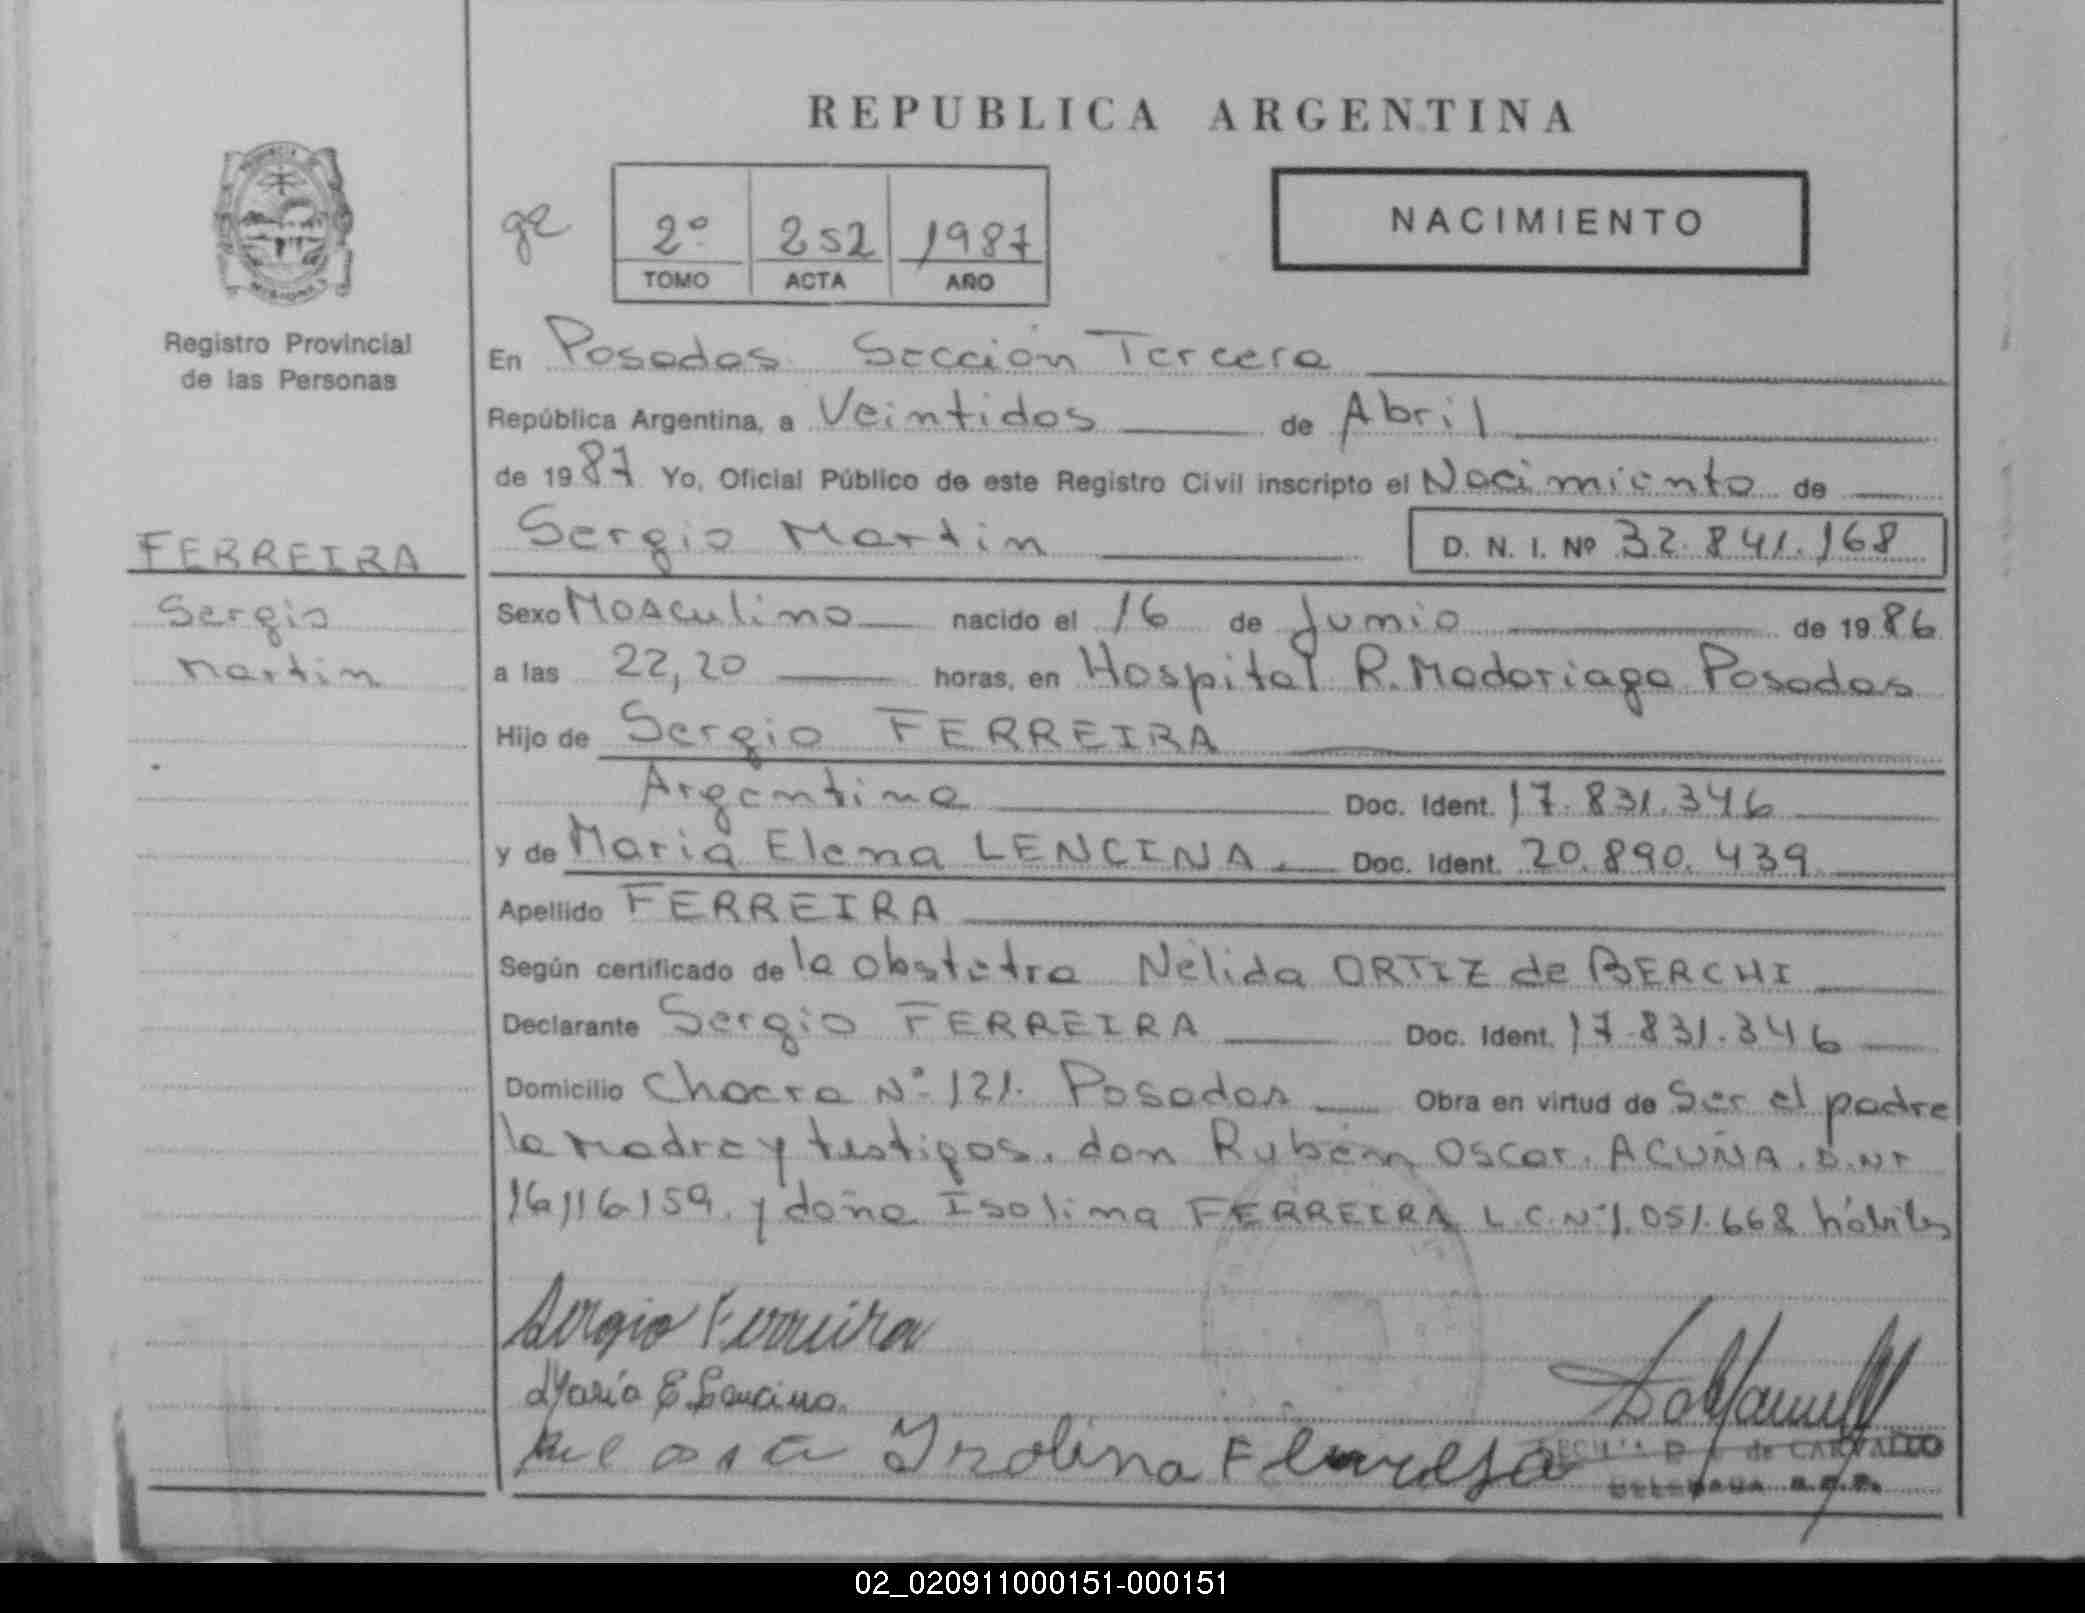 REPUBLICA ARGENTINA
2º 252 1987
TOMO ACTA AÑO
NACIMIENTO
Registro Provincial
de las Personas
FERREIRA
Sergio
Martin
En Posadas Sección Tercera
República Argentina, a Veintidos de Abril
de 1987 Yo, Oficial Público de este Registro Civil inscripto el Nacimiento de
Sergio Martin D. N. I. Nº 32.841.168
Sexo Masculino nacido el 16 de Junio de 1986
a las 22,20 horas, en Hospital R. Madariaga Posadas
Hijo de Sergio FERREIRA
Argentina Doc. Ident. 17.831.346
y de Maria Elena LENCINA. Doc. Ident. 20.890.439
Apellido FERREIRA
Según certificado de la obstetra Nélida ORTIZ de BERCHI
Declarante Sergio FERREIRA Doc. Ident. 17.831.346
Domicilio Chacra Nº 121. Posadas Obra en virtud de Ser el padre
la Madre y testigos. don Rubém Oscar. ACUÑA. D.NI
16.116.159. y doña Isolina FERREIRA L.C.Nº1.051.668 hábiles
Sergio Ferreira
María E Lencina.
de CARVALLO
02_020911000151-000151